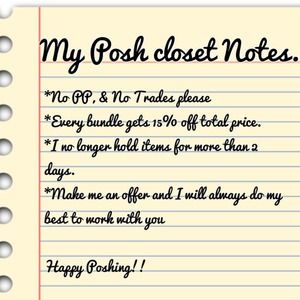 My Posh closet Notes.
*No PP, & No Trades please
*Every bundle gets 15% off total price.
*I no longer hold items for more than 2
days.
*Make me an offer and I will always do my
best to work with you
Happy Poshing!!